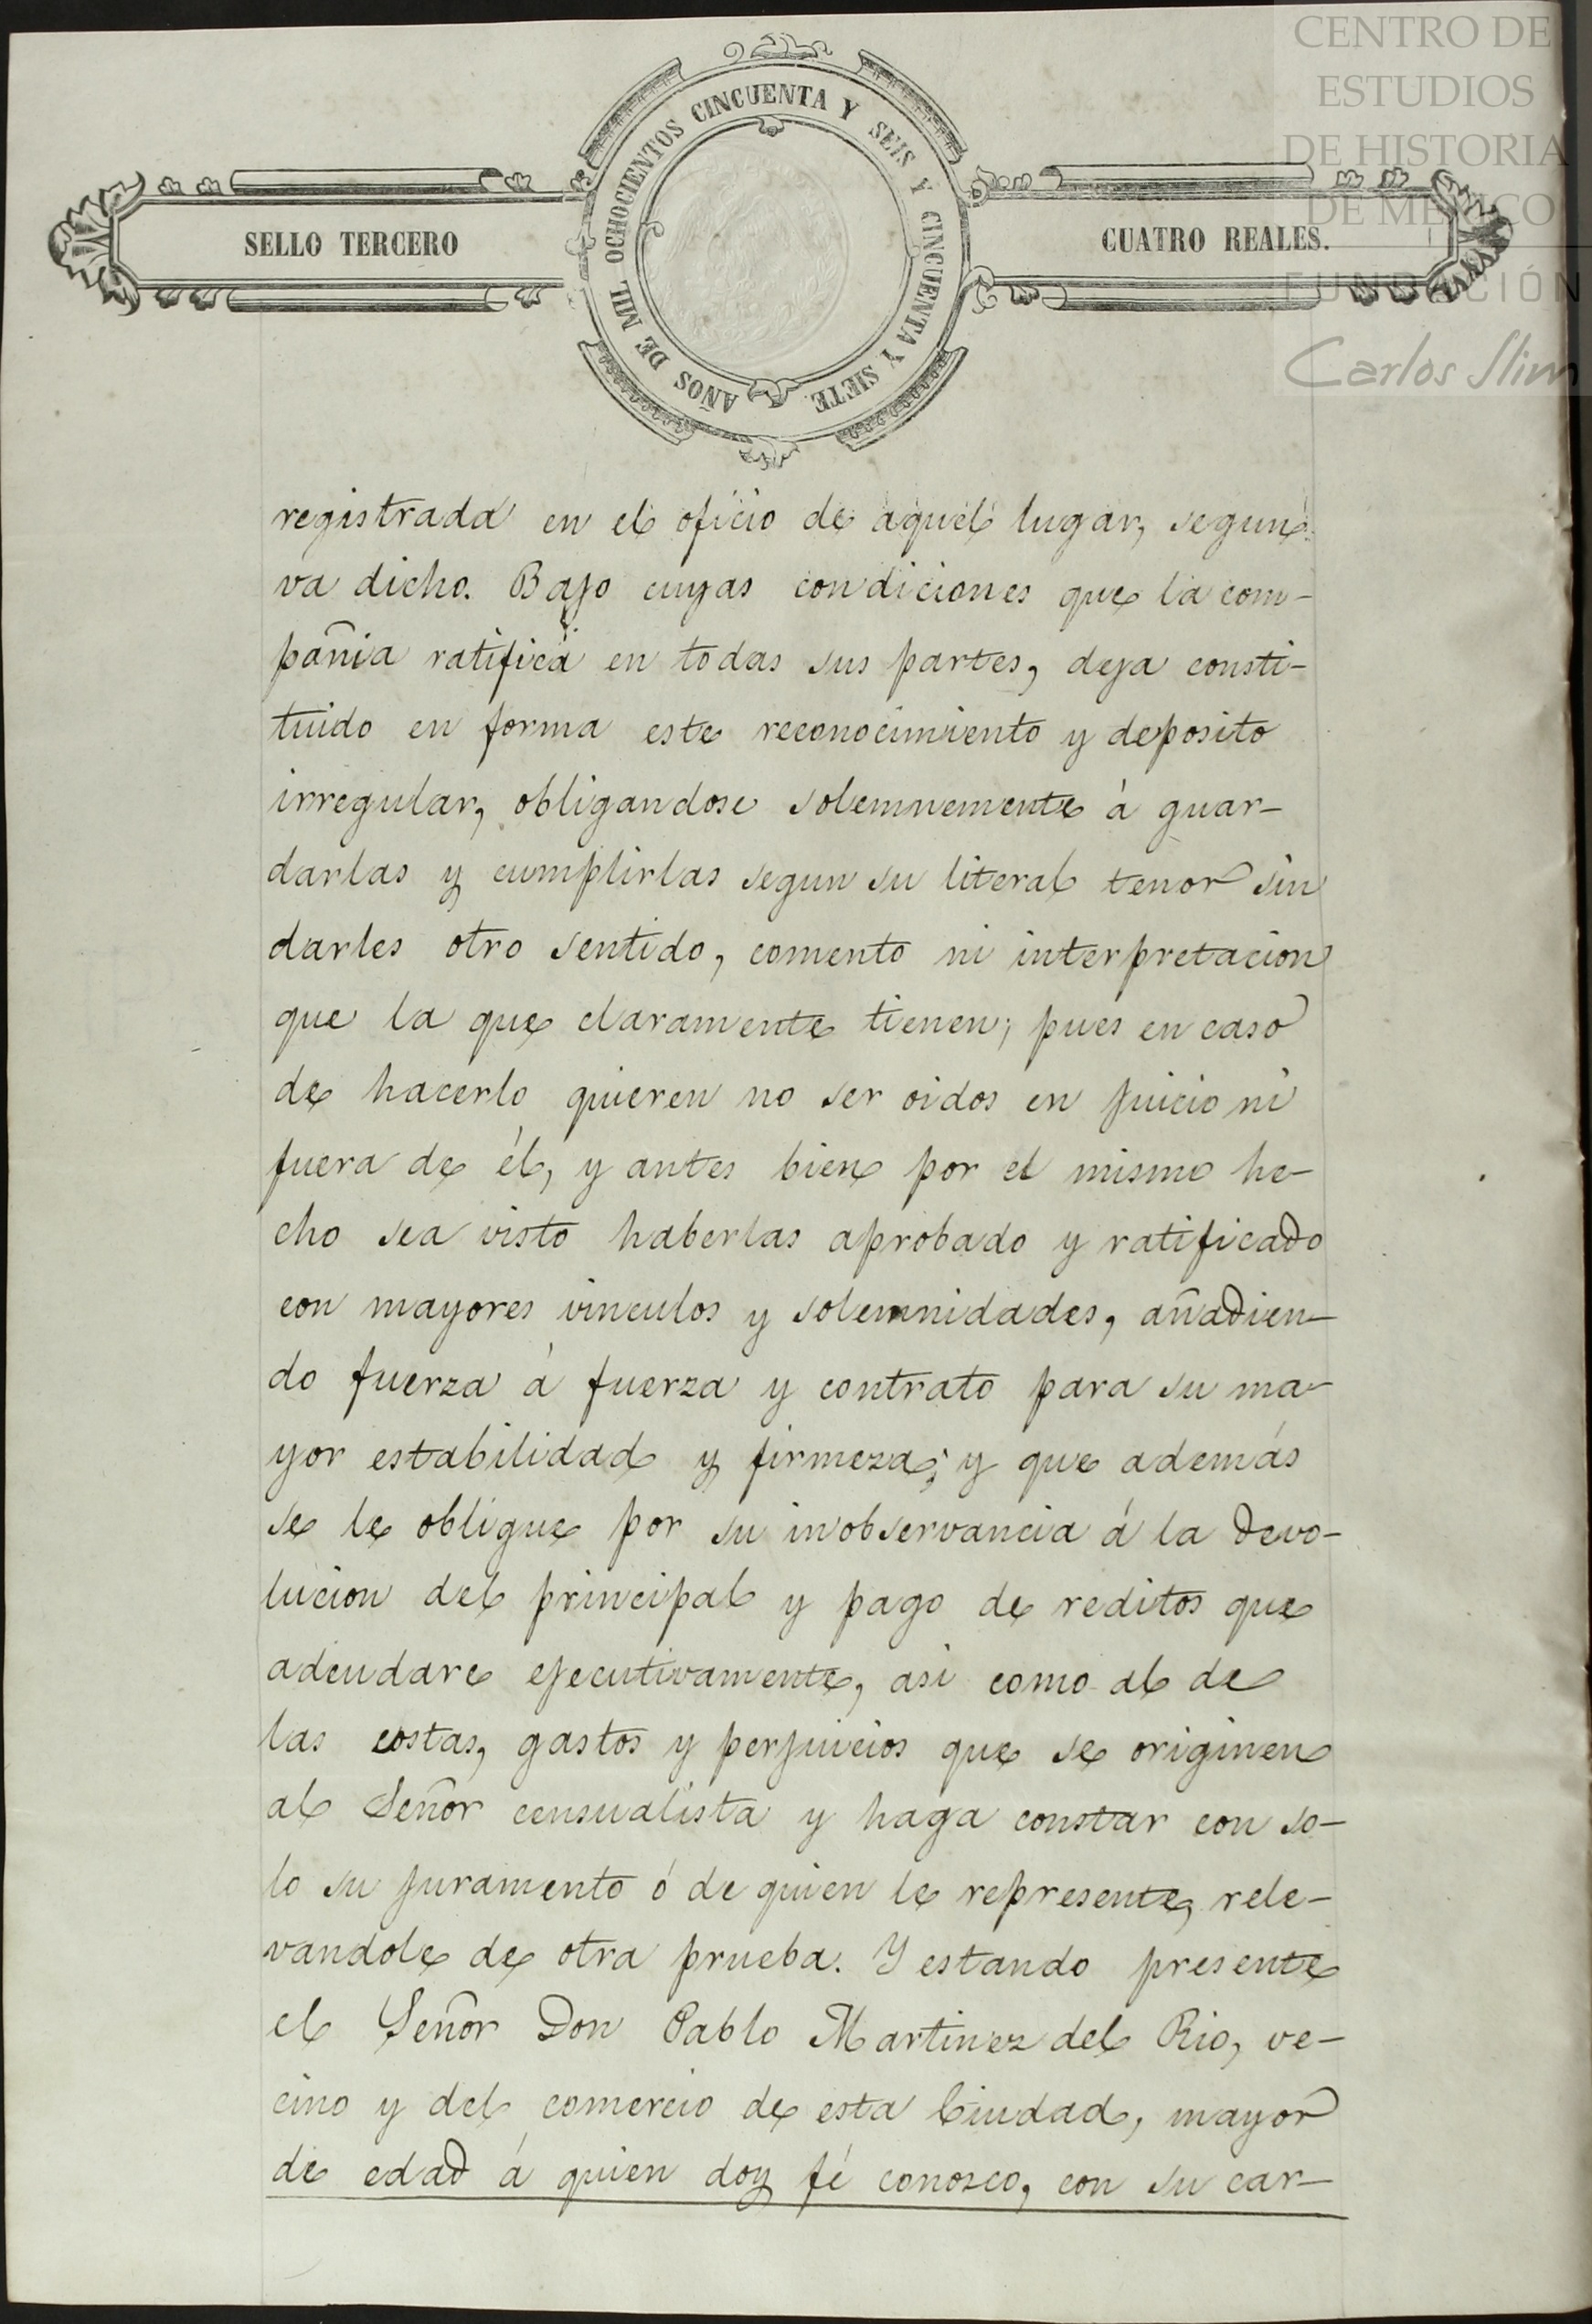 CENTRO DE
ESTUDIOS
DE HISTORIA
DE MÉXICO
FUNDACIÓN
Carlos Slim
SELLO TERCERO
AÑOS DE MIL OCHOCIENTOS CINCUENTA Y SEIS Y CINCUENTA Y SIETE
CUATRO REALES.
registrada en el oficio de aquel lugar, segun
va dicho. Bajo cuyas condiciones que la com-
pañia ratifica en todas sus partes, deja consti-
tuido en forma este reconocimiento y deposito
irregular, obligandose solemnemente á guar-
darlas y cumplirlas segun su literal tenor sin
darles otro sentido, comento ni interpretacion
que la que claramente tienen; pues en caso
de hacerlo quieren no ser oidos en juicio ni
fuera de él, y antes bien por el mismo he-
cho sea visto haberlas aprobado y ratificado
con mayores vinculos y solemnidades, añadien-
do fuerza á fuerza y contrato para su ma-
yor estabilidad y firmeza; y que además
se le obligue por su inobservancia á la devo-
lucion del principal y pago de reditos que
adeudare ejecutivamente, asi como al de
las costas, gastos y perjuicios que se originen
al Señor censualista y haga constar con so-
lo su juramento ó de quien le represente, rele-
vandole de otra prueba. Y estando presente
el Señor Don Pablo Martinez del Rio, ve-
cino y del comercio de esta Ciudad, mayor
de edad á quien doy fé conosco, con su car-